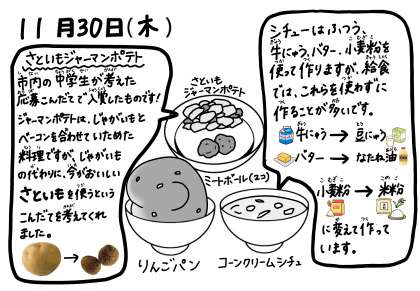 11月30日(木)
さといもジャーマンポテト
市内の中学生が考えた
応募こんだてで入賞したものです!
ジャーマンポテトは、じゃがいもと
ベーコンを合わせていためた
料理ですが、じゃがいも
の代わりに、今がおいしい
さといもを使うという
こんだてを考えてくれ
ました。
さといも
ジャーマンポテト
ミートボール(2コ)
りんごパン
コーンクリームシチュー
シチューはふつう、
牛にゅう、バター、小麦粉を
使って作りますが、給食
では、これらを使わずに
作ることが多いです。
牛にゅう→豆にゅう
バター→なたね油
小麦粉→米粉
に変えて作って
います。